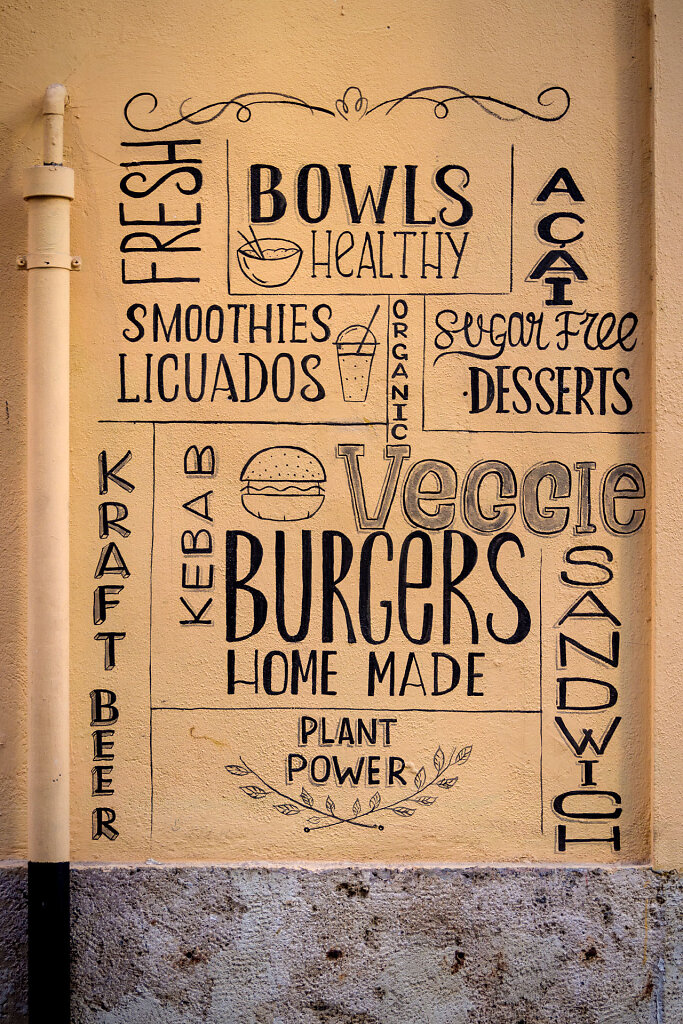 FRESH
BOWLS
HEALTHY
AÇAÍ
SMOOTHIES
LICUADOS
ORGANIC
SUGAR FREE
DESSERTS
KRAFT BEER
KEBAB
VEGGIE
BURGERS
HOME MADE
SANDWICH
PLANT
POWER